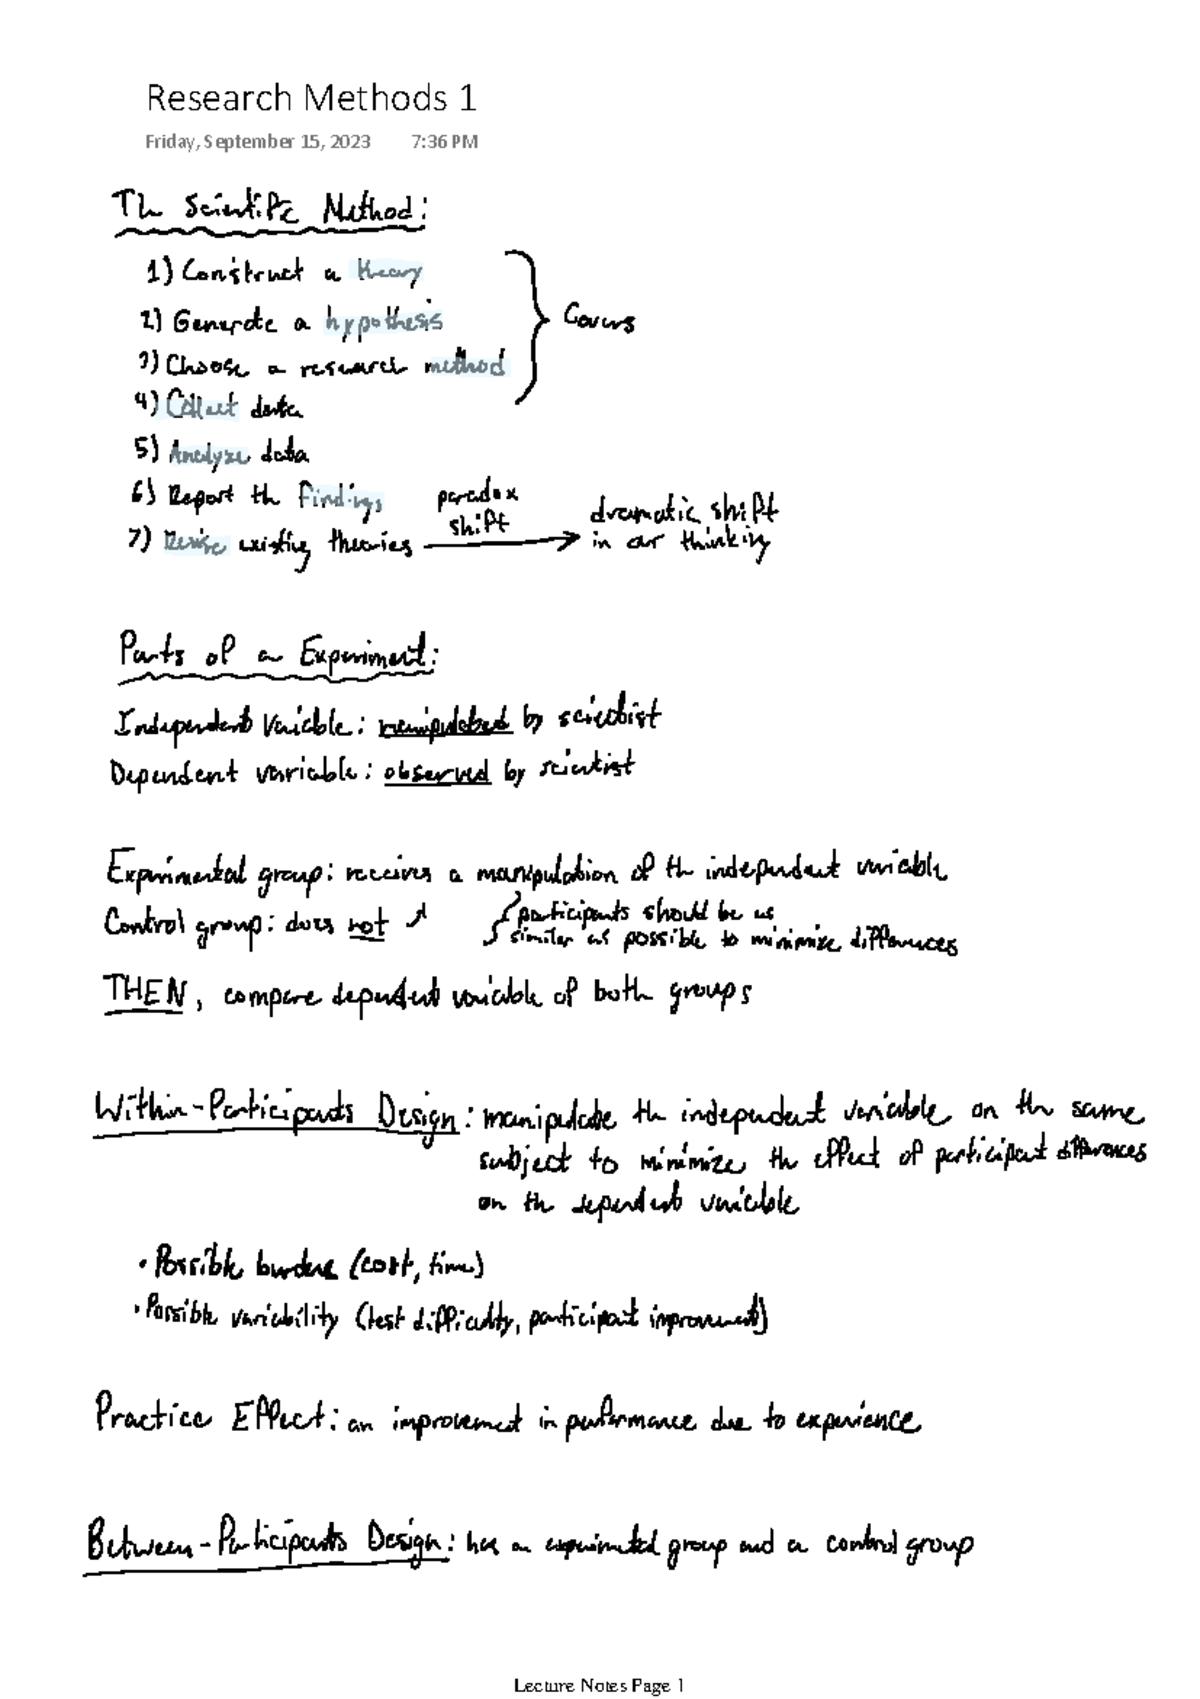 Research Methods 1
Friday, September 15, 2023 7:36 PM
The Scientific Method:
1) Construct a theory
2) Generate a hypothesis
3) Choose a research method
4) Collect data
Covers
5) Analyze data
6) Report the findings
7) Revise existing theories
paradox
shift
dramatic shift
in our thinking
Parts of a Experiment:
Independent Variable: manipulated by scientist
Dependent variable: observed by scientist
Experimental group: receives a manipulation of the independent variable
Control group: does not
participants should be as
similar as possible to minimize differences
THEN, compare dependent variable of both groups
Within-Participants Design: manipulate the independent variable on the same
subject to minimize the effect of participant differences
on the dependent variable
• Possible burdens (cost, time)
• Possible variability (test difficulty, participant improvement)
Practice Effect: an improvement in performance due to experience
Between-Participants Design: has an experimental group and a control group
Lecture Notes Page 1